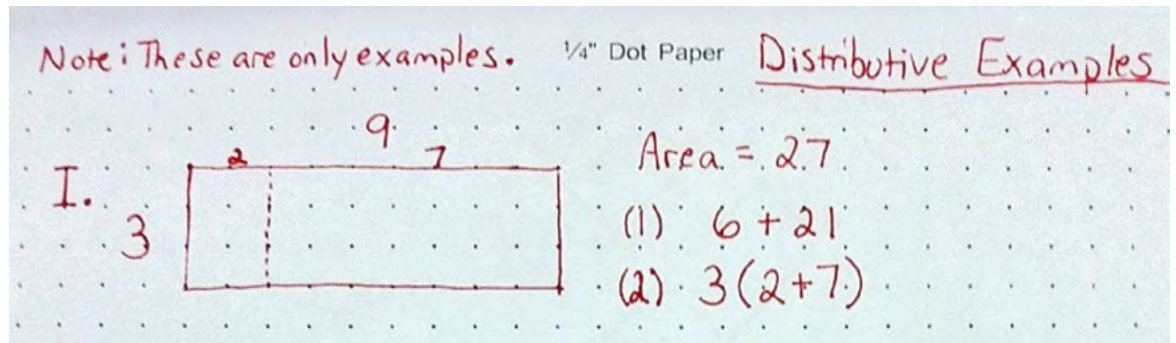 Note: These are only examples. 1/4" Dot Paper Distributive Examples
9
2 7
Area = 27
I.
3
(1) 6 + 21
(2) 3(2+7)